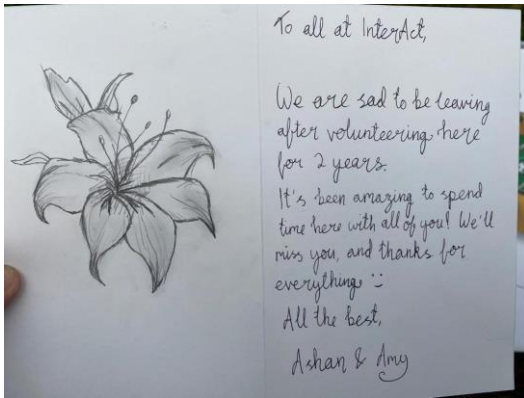 To all at InterAct,
We are sad to be leaving
after volunteering here
for 2 years.
It's been amazing to spend
time here with all of you! We'll
miss you, and thanks for
everything :)
All the best,
Ashan & Amy